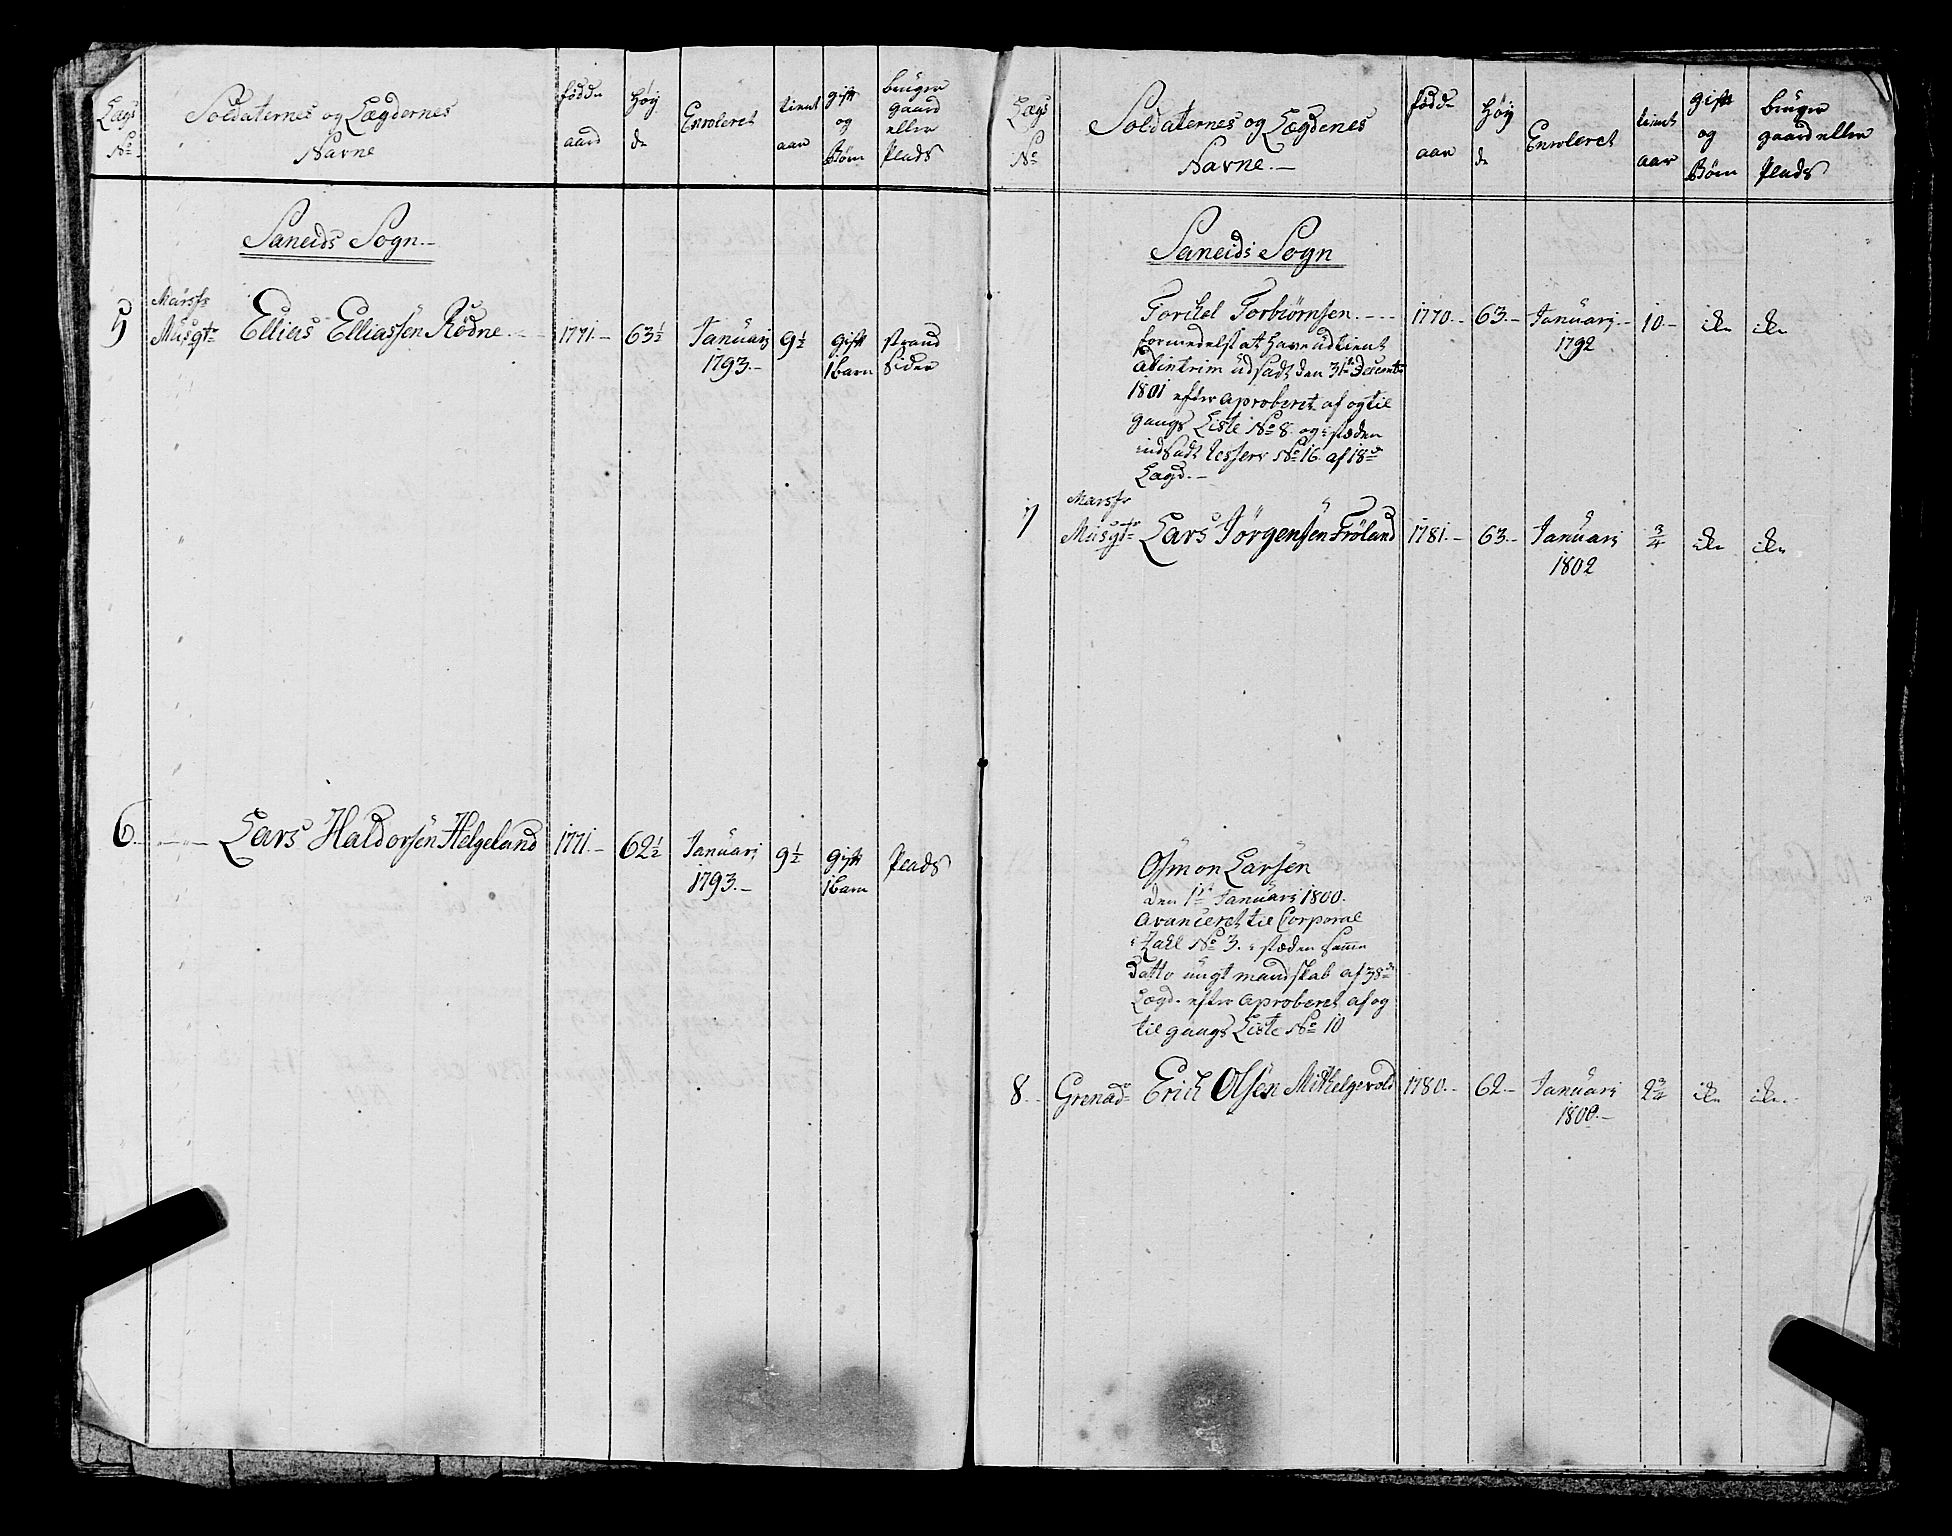 Lægs No Soldaternes og Lægdernes Navne fødde aard Høy de Enroleret tient aar gift og Børn bruger gaard eller Plads
Saneids Sogn.
5 Marsfr Musqtr Ellias Elliassen Rödne 1771. 63½ Januarj 1793. 9½ gift 1 barn strand Sider
6 Lars Haldorsen Helgeland 1771. 62½ Januarj 1793. 9½ gift 1 barn Plads
Lægs No Soldaternes og Lægdenes Navne. fødde aar Høy de Enroleret tient aar gift og Børn bruger gaard eller Plads
Saneids Sogn
Torchel Torbiørnsen. 1770. 63. Januarj 1792 10. ide ide
formedelst at have udtient
Abintrim udsadt den 31te Decembr
1801 efter aproberet af og til
gangs Liste No 8. og i stæden
indsadt No 16 af 18de
Lægd.
7 Marsfr Musqtr Lars Jørgensen Frøland 1781. 63. Januarj 1802 ¾ ide ide
Osmon Larsen
den 1te Januarj 1800.
Avanceret til Corporal
No 3. i stæden samme
datto ungt mandskab af 38de
Lægd. efter aproberet af og
til gangs Liste No 10
8. Grenadr Erich Olsen Mithelgevold 1780. 62. Januarj 1800. 2¾ ide ide.